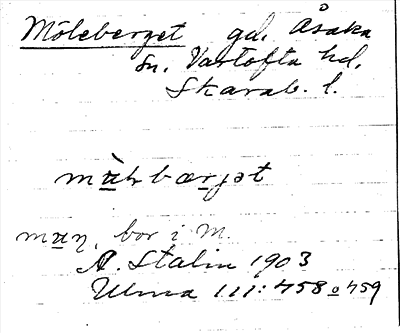 Möleberget gd. Åsaka
sn. Vartofta hd.
Skarab. l.
bærjət
bor i M.
A. Stalin 1903
Ulma 111:458 o 459